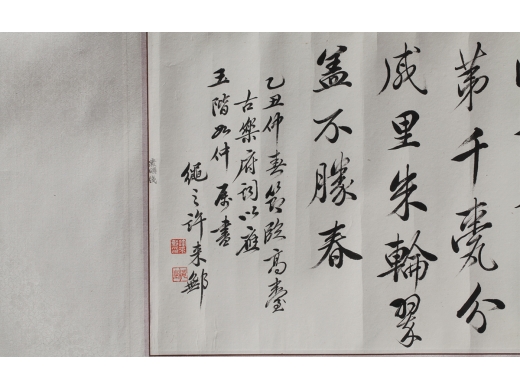 第千甍分
戚里朱輪翠
蓋不勝春
乙丑仲春節臨高臺
古樂府詞以應
玉階如仲屬書
繩之許來鄉